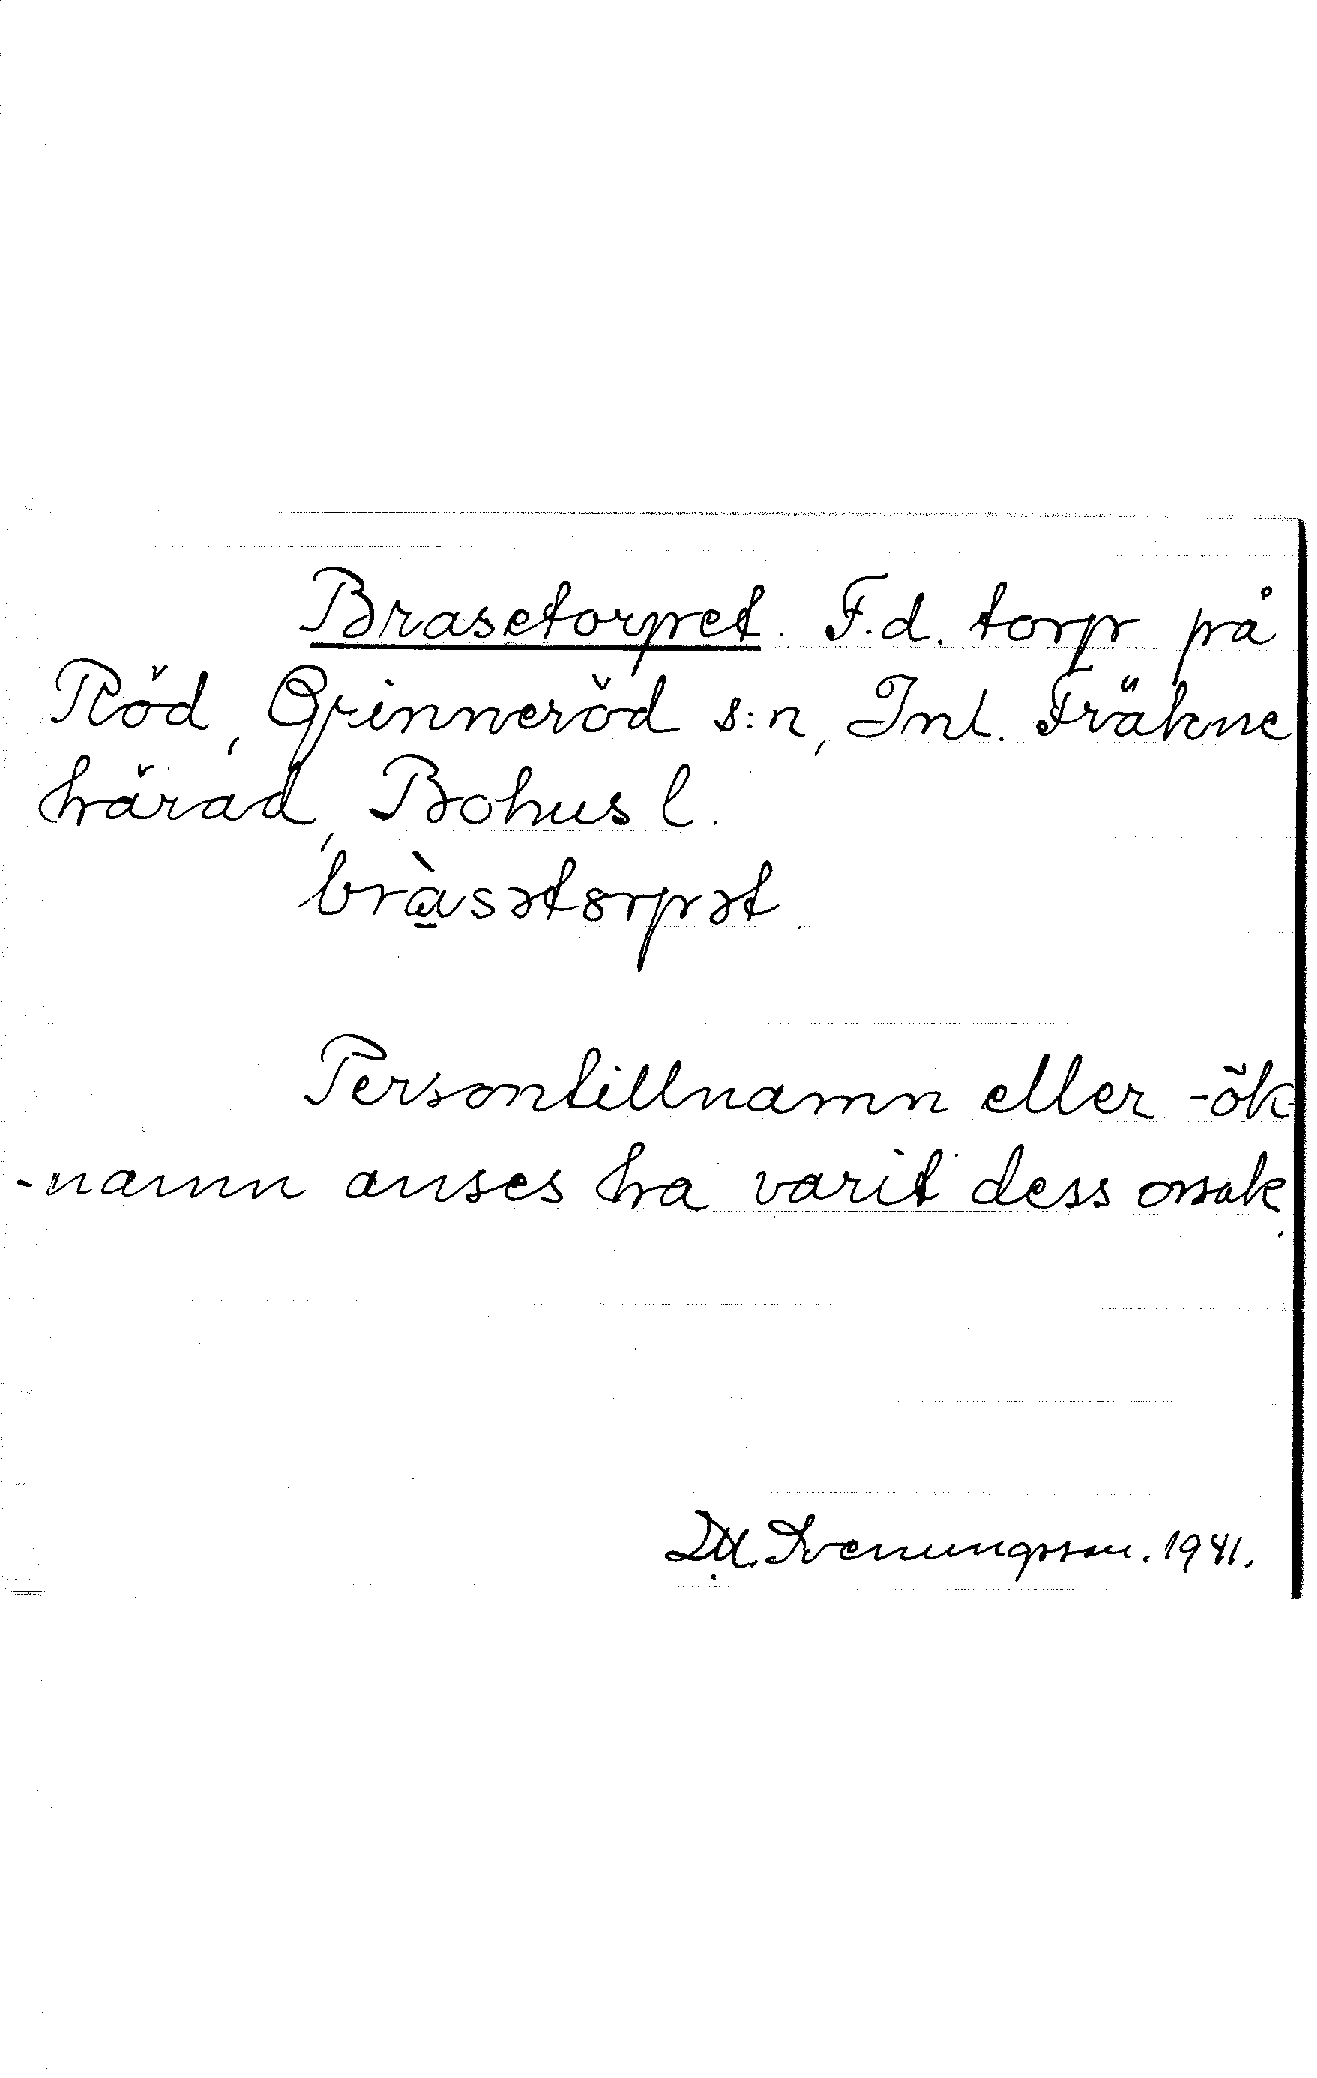 Brasetorpet. F.d. torp på
Röd, Grinneröd s:n, Inl. Fräkne
härad, Bohus l.
bràsətȣrpət.
Persontillnamn eller -ök-
-namn anses ha varit dess orsak.
Hj. Svenungsson. 1941.